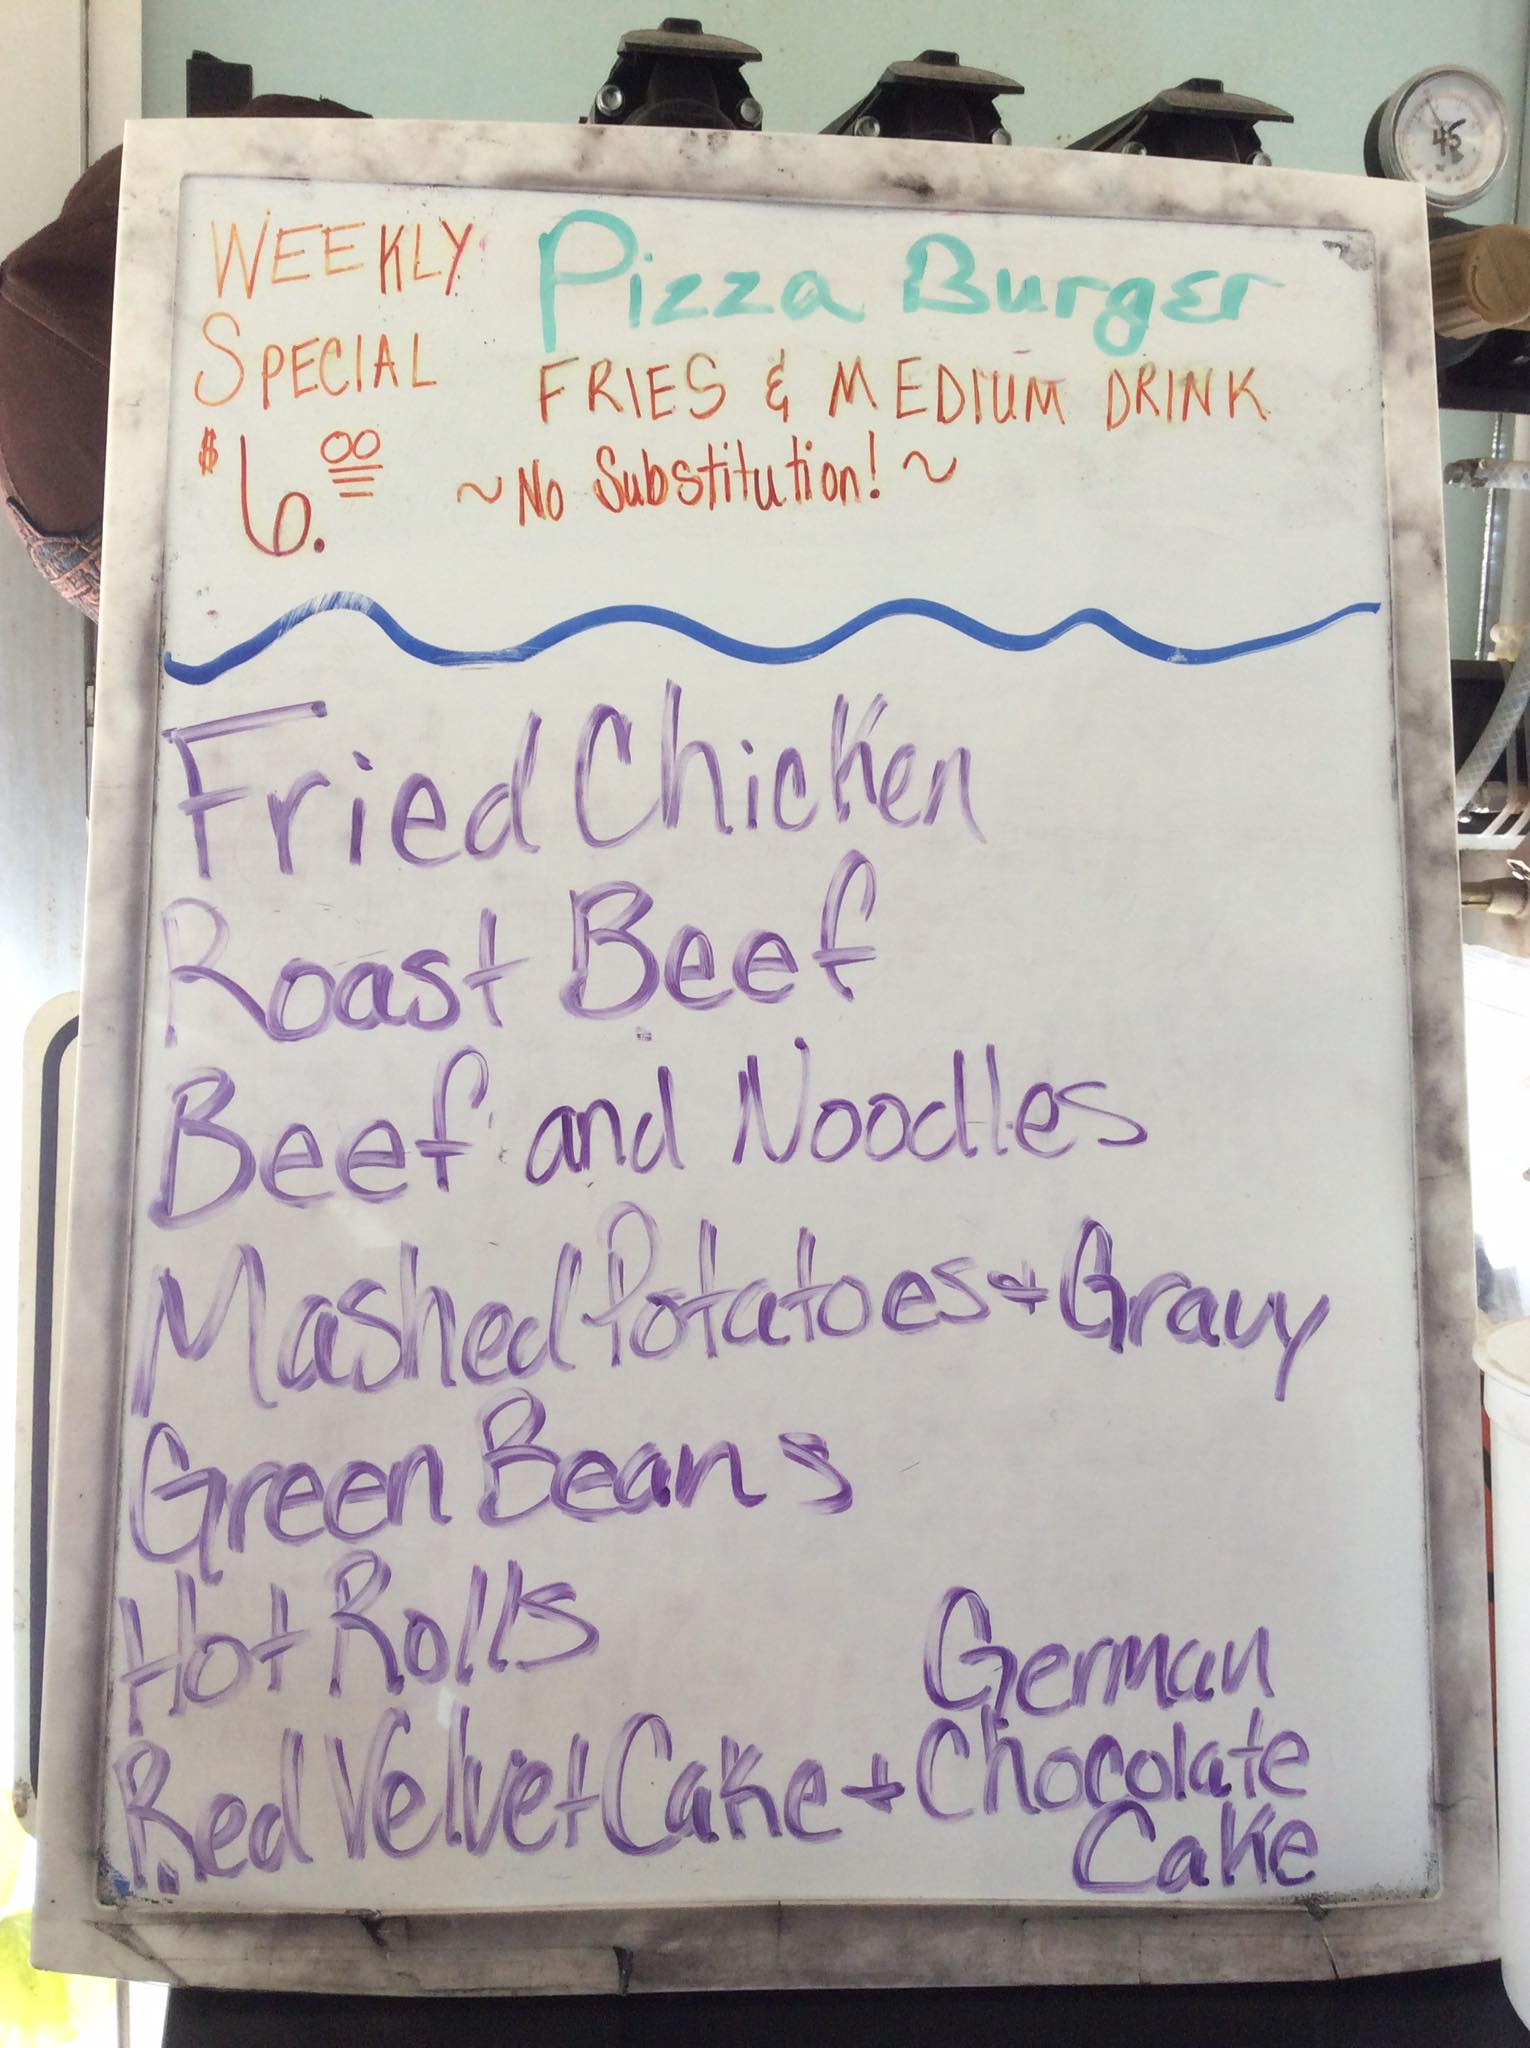 WEEKLY
SPECIAL
$6.00
Pizza Burger
FRIES & MEDIUM DRINK
~No Substitution!~
Fried Chicken
Roast Beef
Beef and Noodles
Mashed Potatoes + Gravy
Green Beans
Hot Rolls
Red Velvet Cake + German
Chocolate
Cake
45